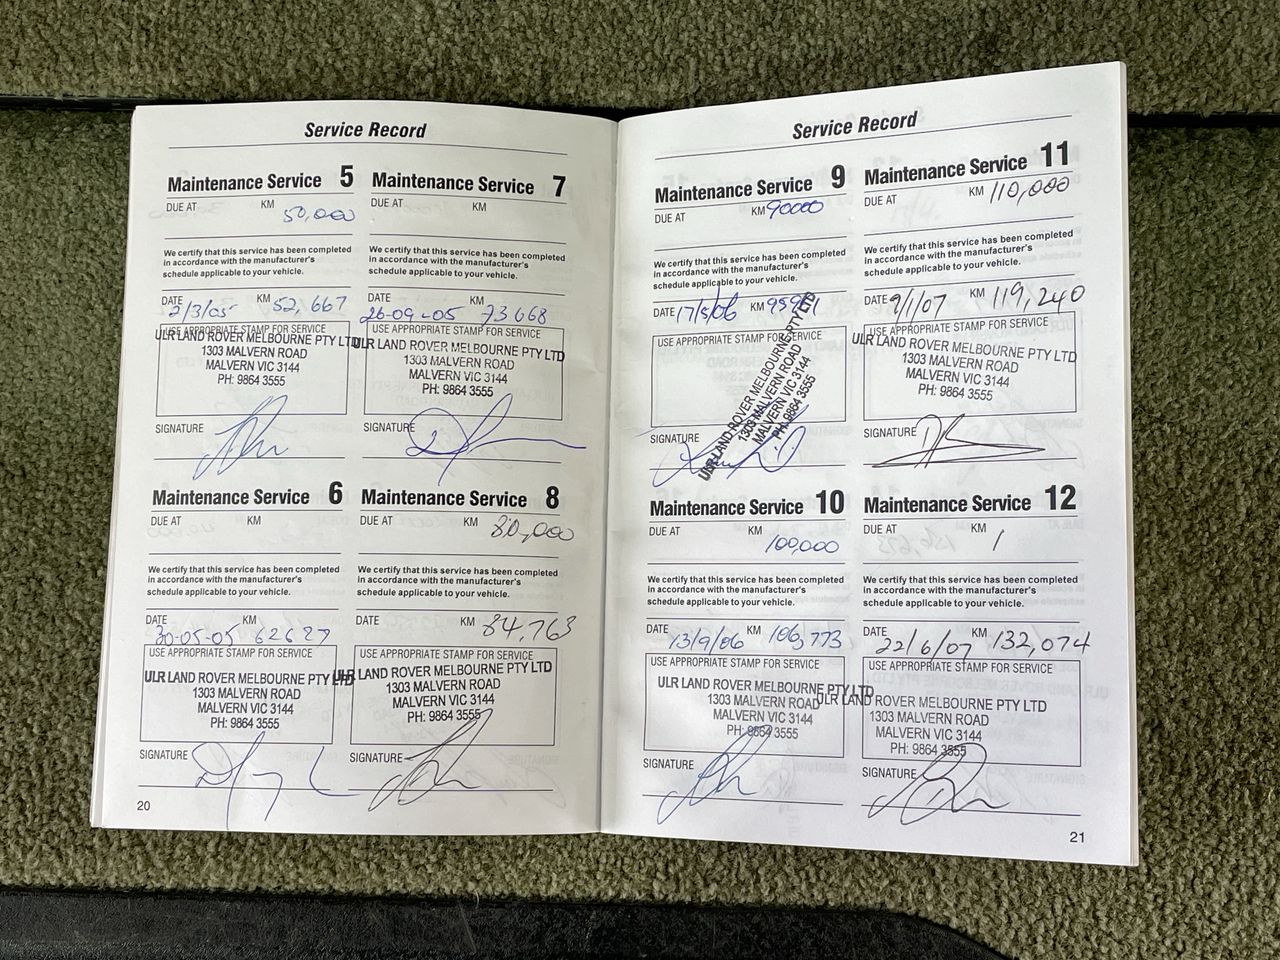 Service Record
Maintenance Service 5
DUE AT KM
50,000
We certify that this service has been completed
in accordance with the manufacturer's
schedule applicable to your vehicle.
DATE KM
2/3/05 52,667
USE APPROPRIATE STAMP FOR SERVICE
ULR LAND ROVER MELBOURNE PTY LTD
1303 MALVERN ROAD
MALVERN VIC 3144
PH: 9864 3555
SIGNATURE
Maintenance Service 7
DUE AT KM
We certify that this service has been completed
in accordance with the manufacturer's
schedule applicable to your vehicle.
DATE KM
26-09-05 73668
USE APPROPRIATE STAMP FOR SERVICE
ULR LAND ROVER MELBOURNE PTY LTD
1303 MALVERN ROAD
MALVERN VIC 3144
PH: 9864 3555
SIGNATURE
Maintenance Service 6
DUE AT KM
We certify that this service has been completed
in accordance with the manufacturer's
schedule applicable to your vehicle.
DATE KM
30-05-05 62627
USE APPROPRIATE STAMP FOR SERVICE
ULR LAND ROVER MELBOURNE PTY LTD
1303 MALVERN ROAD
MALVERN VIC 3144
PH: 9864 3555
SIGNATURE
Maintenance Service 8
DUE AT KM
80,000
We certify that this service has been completed
in accordance with the manufacturer's
schedule applicable to your vehicle.
DATE KM 84,763
USE APPROPRIATE STAMP FOR SERVICE
ULR LAND ROVER MELBOURNE PTY LTD
1303 MALVERN ROAD
MALVERN VIC 3144
PH: 9864 3555
SIGNATURE
20
Service Record
Maintenance Service 9
DUE AT KM 90000
We certify that this service has been completed
in accordance with the manufacturer's
schedule applicable to your vehicle.
DATE 17/5/06 KM
USE APPROPRIATE STAMP FOR SERVICE
ULR LAND ROVER MELBOURNE PTY LTD
1303 MALVERN ROAD
MALVERN VIC 3144
PH: 9864 3555
SIGNATURE
Maintenance Service 11
DUE AT KM 110,000
We certify that this service has been completed
in accordance with the manufacturer's
schedule applicable to your vehicle.
DATE 9/1/07 KM 119,240
USE APPROPRIATE STAMP FOR SERVICE
ULR LAND ROVER MELBOURNE PTY LTD
1303 MALVERN ROAD
MALVERN VIC 3144
PH: 9864 3555
SIGNATURE
Maintenance Service 10
DUE AT KM
100,000
We certify that this service has been completed
in accordance with the manufacturer's
schedule applicable to your vehicle.
DATE 13/9/06 KM 106,773
USE APPROPRIATE STAMP FOR SERVICE
ULR LAND ROVER MELBOURNE PTY LTD
1303 MALVERN ROAD
MALVERN VIC 3144
PH: 9864 3555
SIGNATURE
Maintenance Service 12
DUE AT KM /
We certify that this service has been completed
in accordance with the manufacturer's
schedule applicable to your vehicle.
DATE 22/6/07 KM 132,074
USE APPROPRIATE STAMP FOR SERVICE
ULR LAND ROVER MELBOURNE PTY LTD
1303 MALVERN ROAD
MALVERN VIC 3144
PH: 9864 3555
SIGNATURE
21